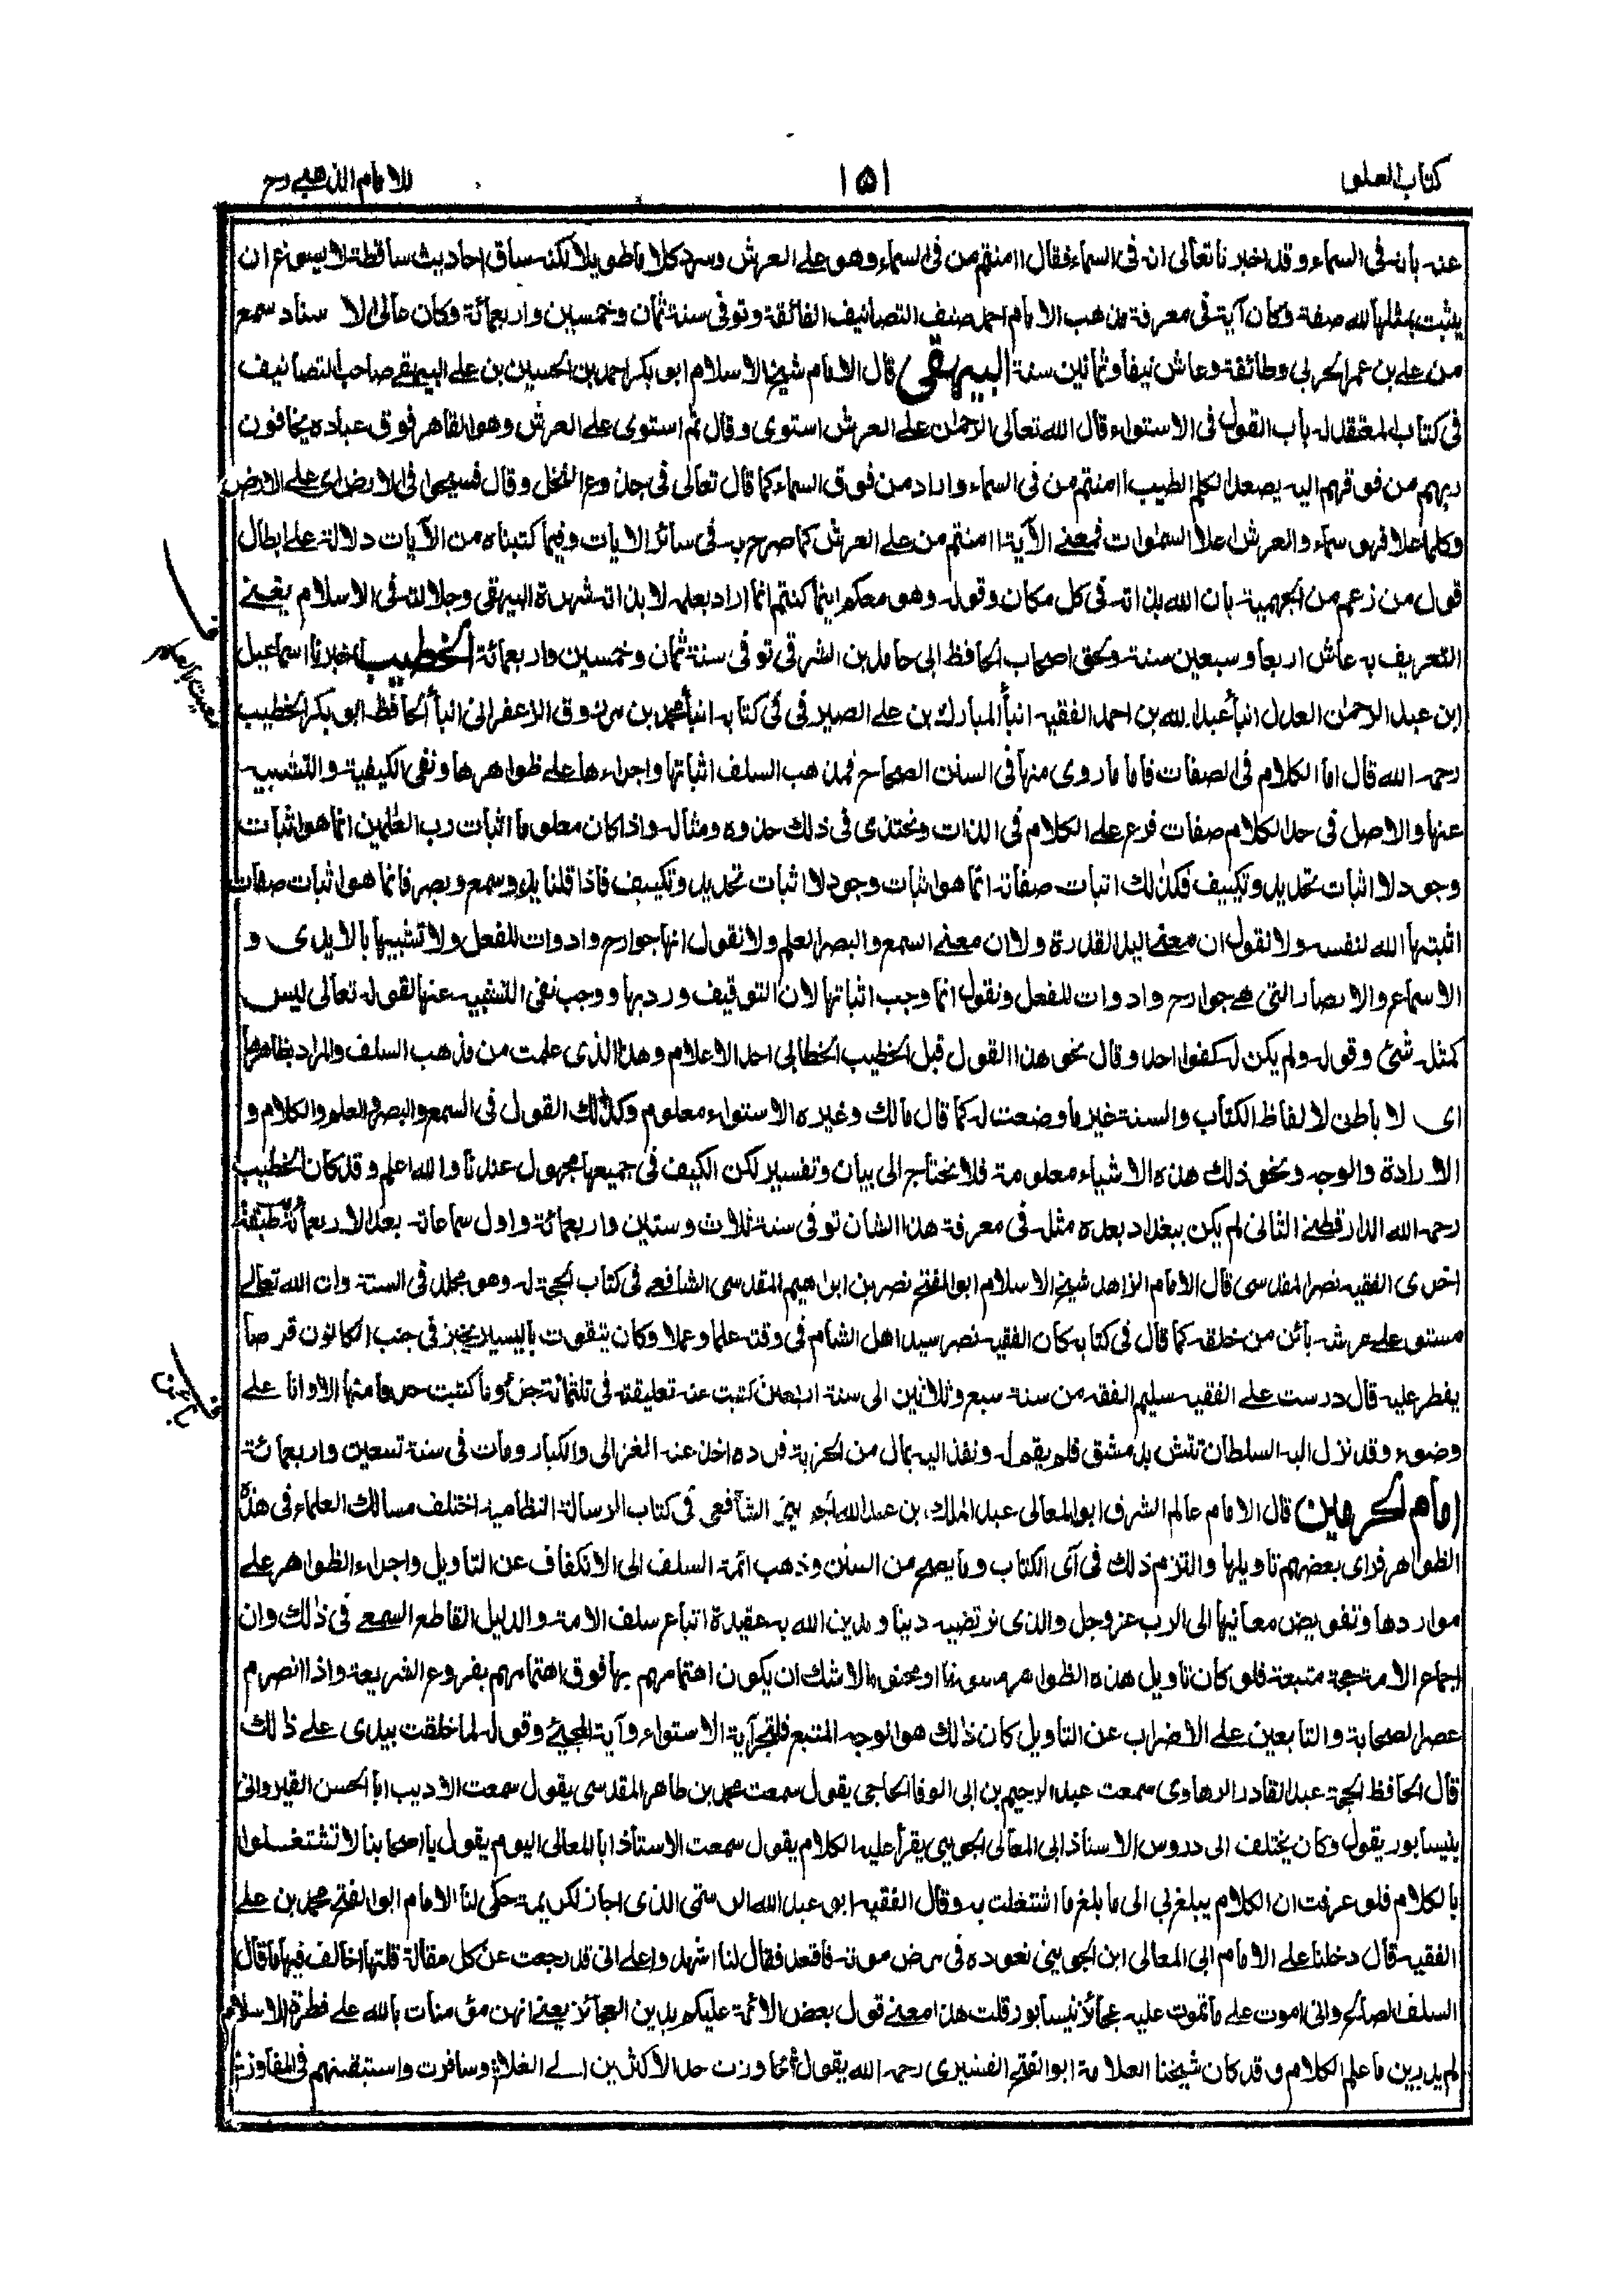 كتاب العلو
١٥١
للامام الذهبي رح
عنه بانه فى السماء وقد اخبرنا تعالى انه فى السماء فقال اامنتم من فى السماء وهو على العرش وسرد كلاما طويلا لكنه ساق احاديث ساقطة لا يسوغ ان
يثبت بمثلها لله صفة وكان آية فى معرفة مذهب الامام احمد صنف التصانيف الفائقة وتوفى سنة ثمان وخمسين واربعمائة وكان عالى الا سناد سمع
من على بن عمر الحربي وطائفة وعاش نيفا وثمانين سنة البيهقى قال الامام شيخ الاسلام ابو بكر احمد بن الحسين بن على البيهقى صاحب التصانيف
فى كتاب المعتقد له باب القول فى الاستواء قال الله تعالى الرحمن على العرش استوى وقال ثم استوى على العرش وهو القاهر فوق عباده يخافون
ربهم من فوقهم اليه يصعد الكلم الطيب اامنتم من فى السماء واراد من فوق السماء كما قال تعالى فى جذوع النخل وقال فسيحوا فى الارض اى على الارض
وكلما علا فهو سماء والعرش اعلا السموات فمعنى الآية اامنتم من على العرش كما صرح به فى سائر الايات وفيما كتبناه من الآيات دلالة على ابطال
قول من زعم من الجهمية بان الله بذاته فى كل مكان وقوله وهو معكم اينما كنتم انما اراد بعلمه لا بذاته شهرة البيهقى وجلالته فى الاسلام يغنى
التعريف به عاش اربعا وسبعين سنة ولحق اصحاب الحافظ ابى حامد بن الشرقى توفى سنة ثمان وخمسين واربعمائة الخطيب اخبرنا اسماعيل
ابن عبد الرحمن العدل انبأ عبد الله بن احمد الفقيه انبأ المبارك بن على الصيرفى فى كتابه انبأ محمد بن مرزوق الزعفرانى انبأ الحافظ ابو بكر الخطيب
رحمه الله قال اما الكلام فى الصفات فاما ما روى منها فى السنن الصحاح فمذهب السلف اثباتها واجراءها على ظواهرها ونفى الكيفية والتشبيه
عنها والاصل فى هذا الكلام صفات فرع على الكلام فى الذات ونحتذى فى ذلك حذوه ومثاله واذا كان معلوما اثبات رب العلمين انما هو اثبات
وجود لا اثبات تحديد وتكييف فكذلك اثبات صفاته انما هو اثبات وجود لا اثبات تحديد وتكييف فاذا قلنا يد وسمع وبصر فانما هو اثبات صفات
اثبتها الله لنفسه ولا نقول ان معنى اليد القدرة ولا ان معنى السمع والبصر العلم ولا نقول انها جوارح وادوات للفعل ولا تشبيها بالايدى و
الاسماع والابصار التى هى جوارح وادوات للفعل ونقول انما وجب اثباتها لان التوقيف ورد بها ووجب نفى التشبيه عنها لقوله تعالى ليس
كمثله شئ وقوله ولم يكن له كفوا احد وقال نحو هذا القول قبل الخطيب الخطابى احد الاعلام وهذا الذى علمت من مذهب السلف والمراد بظاهرها
اى لا باطن لالفاظ الكتاب والسنة غير ما وضعت له كما قال مالك وغيره الاستواء معلوم وكذلك القول فى السمع والبصر والعلم والكلام و
الارادة والوجه ونحو ذلك هذه الاشياء معلومة فلا نحتاج الى بيان وتفسير لكن الكيف فى جميعها مجهول عندنا والله اعلم وقد كان الخطيب
رحمه الله الدارقطنى الثانى لم يكن ببغداد بعده مثله فى معرفة هذا الشان توفى سنة ثلاث وستين واربعمائة واول سماعاته بعد الاربعمائة طبقة
اخرى الفقيه نصر المقدسى قال الامام الزاهد شيخ الاسلام ابو الفتح نصر بن ابراهيم المقدسى الشافعى فى كتاب الحجة له وهو مجلد فى السنة وان الله تعالى
مستو على عرشه بائن من خلقه كما قال فى كتابه كان الفقيه نصر سيد اهل الشام فى وقته علما وعملا وكان يتقوت باليسير يخبز فى جنب الكانون قرصا
يفطر عليه قال درست على الفقيه سليم الفقه من سنة سبع وثلاثين الى سنة اربعين كتبت عنه تعليقته فى ثلثمائة جزء وما كتبت حرفا منها الا وانا على
وضوء وقد نزل اليه السلطان تتش بدمشق فلم يقم له ونفذ اليه بمال من الجزية فرده اخذ عنه الغزالى والكبار ومات فى سنة تسعين واربعمائة
امام الحرمين قال الامام عالم الشرق ابو المعالى عبد الملك بن عبد الله الجوينى الشافعى فى كتاب الرسالة النظامية اختلف مسالك العلماء فى هذه
الظواهر فراى بعضهم تاويلها والتزم ذلك فى آى الكتاب وما يصح من السنن وذهب ائمة السلف الى الانكفاف عن التاويل واجراء الظواهر على
مواردها وتفويض معانيها الى الرب عز وجل والذى نرتضيه دينا وندين الله به عقيدة اتباع سلف الامة والدليل القاطع السمعى فى ذلك وان
اجماع الامة حجة متبعة فلو كان تاويل هذه الظواهر مسوغا او محتوما لا شك ان يكون اهتمامهم بها فوق اهتمامهم بفروع الشريعة واذا انصرم
عصر الصحابة والتابعين على الاضراب عن التاويل كان ذلك هو الوجه المتبع فلتجر آية الاستواء وآية المجئ وقوله لما خلقت بيدى على ذلك
قال الحافظ الحجة عبد القادر الرهاوى سمعت عبد الرحيم بن ابى الوفا الحاجى يقول سمعت محمد بن طاهر المقدسى يقول سمعت الاديب ابا الحسن القيروانى
بنيسابور يقول وكان يختلف الى دروس الاستاذ ابى المعالى الجوينى يقرأ عليه الكلام يقول سمعت الاستاذ ابا المعالى اليوم يقول يا اصحابنا لا تشتغلوا
بالكلام فلو عرفت ان الكلام يبلغ بي الى ما بلغ ما اشتغلت به وقال الفقيه ابو عبد الله الرستمى الذى اجاز لكريمة حكى لنا الامام ابو الفتح محمد بن على
الفقيه قال دخلنا على الامام ابى المعالى ابن الجوينى نعوده فى مرض موته فاقعد فقال لنا اشهدوا على انى قد رجعت عن كل مقالة قلتها اخالف فيها ما قال
السلف الصالح وانى اموت على ما تموت عليه عجائز نيسابور قلت هذا معنى قول بعض الائمة عليكم بدين العجائز يعنى انهن مؤمنات بالله على فطرة الاسلام
لم يدرين ما علم الكلام وقد كان شيخنا العلامة ابو الفتح القشيرى رحمه الله يقول تجاوزت حد الاكثرين الى العلا وسافرت واستبقيتهم فى المفاوز